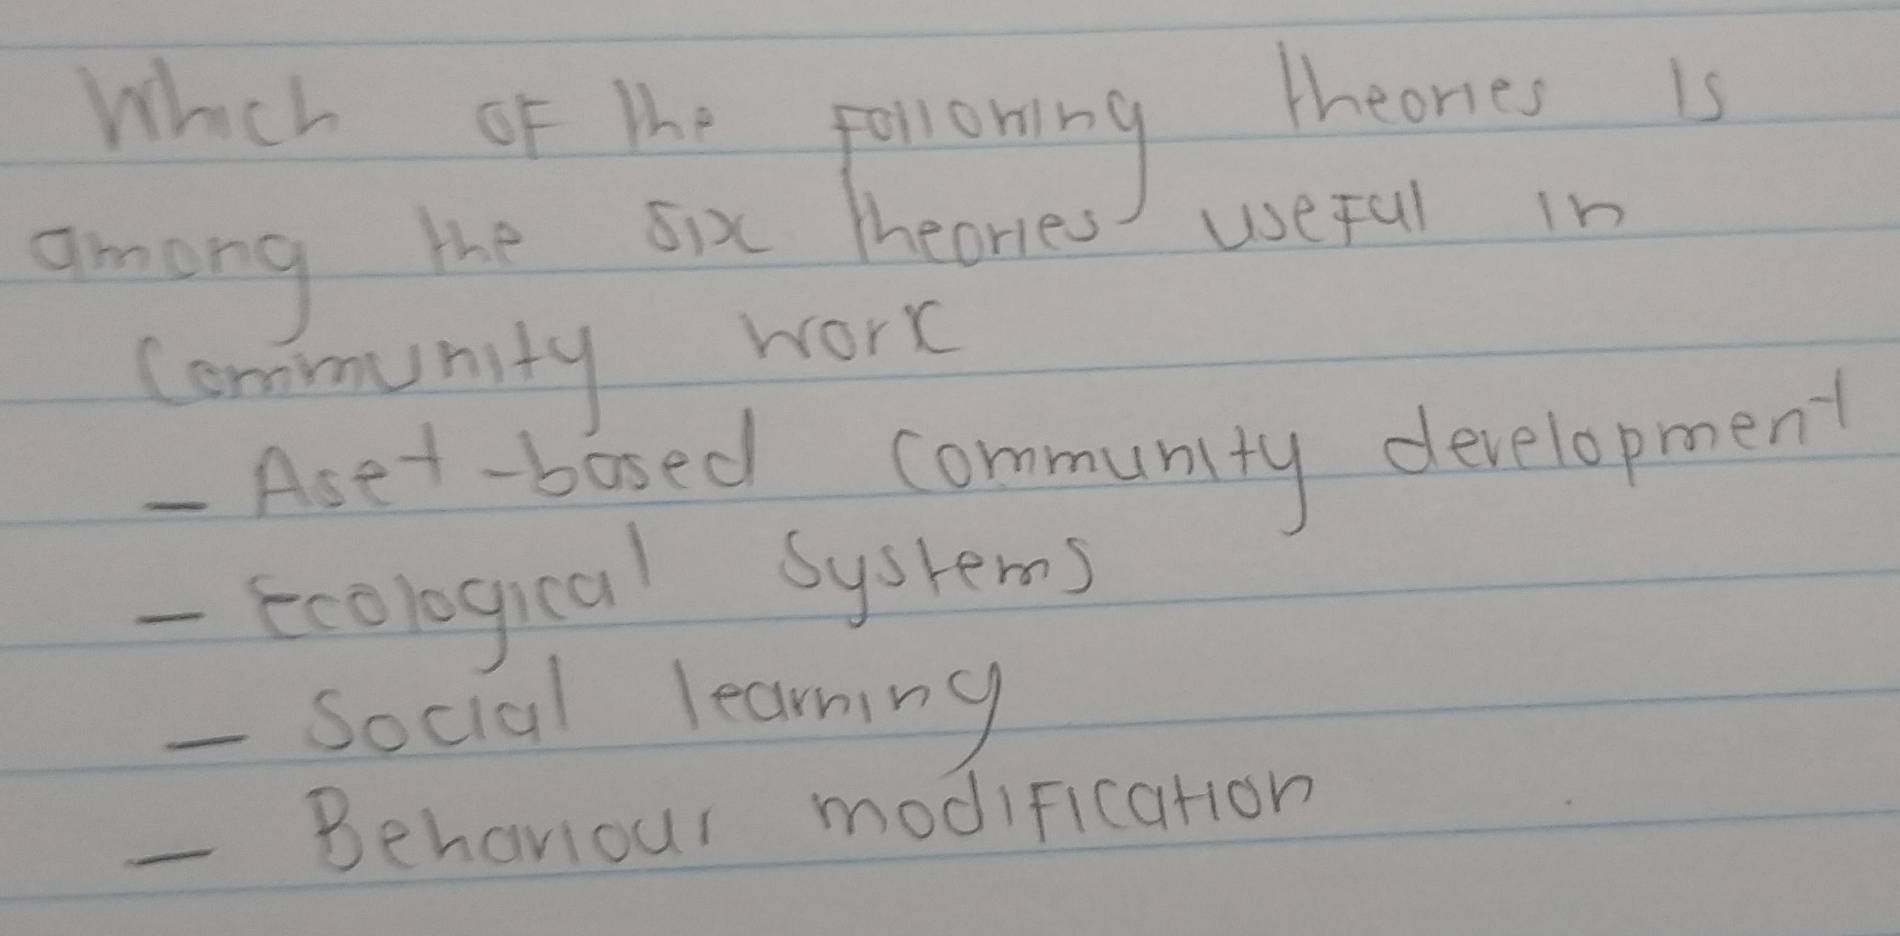 Which of the following theories is
among the six theories useful in
Community work
- Aset-based community development
- Ecological systems
- Social learning
- Behaviour modification